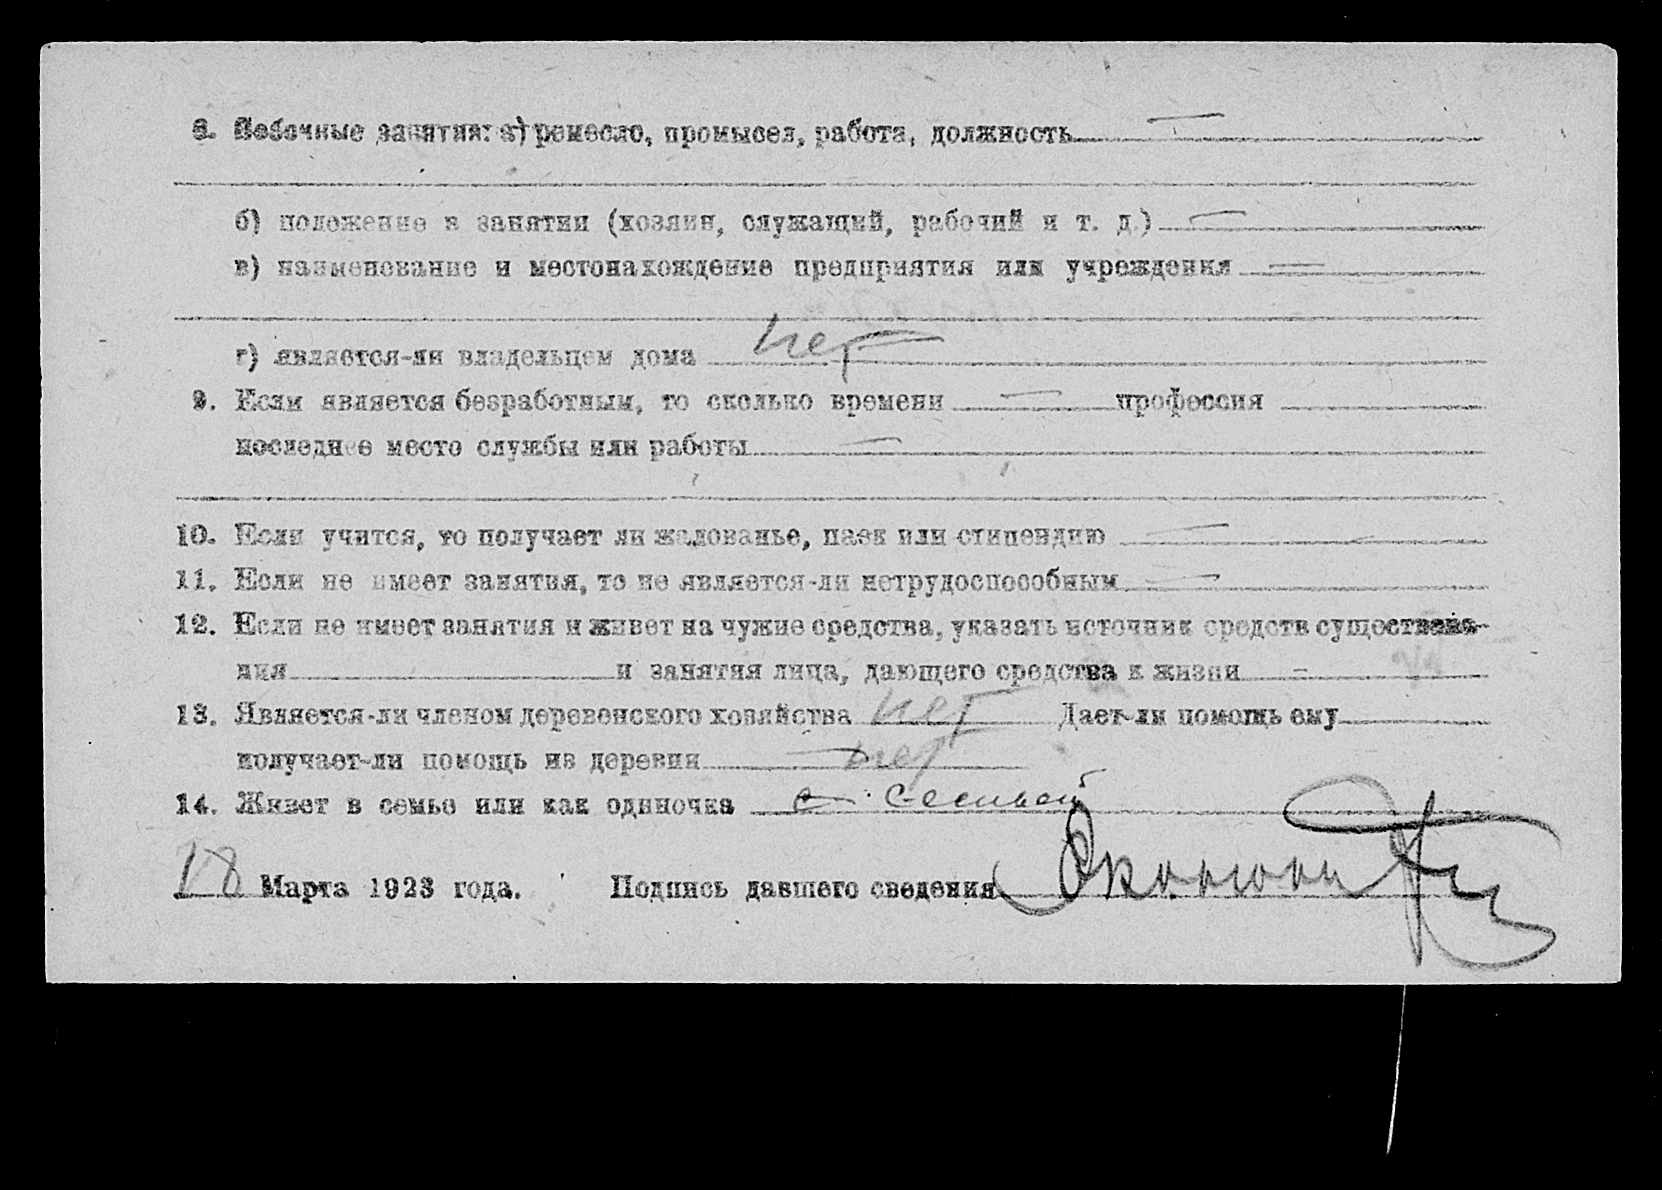 8. Побочные занятия: а) ремесло, промысел, работа, должность —
б) положение в занятии (хозяин, служащий, рабочий и т. д.) —
в) наименование и местонахождение предприятия или учреждения —
г) является-ли владельцем дома нет
9. Если является безработным, то сколько времени — профессия
последнее место службы или работы —
10. Если учится, то получает ли жалованье, паек или стипендию —
11. Если не имеет занятия, то не является-ли нетрудоспособным —
12. Если не имеет занятия и живет на чужие средства, указать источник средств существова-
ния и занятия лица, дающего средства к жизни —
13. Является-ли членом деревенского хозяйства нет Дает-ли помощь ему
получает-ли помощь из деревни нет
14. Живет в семье или как одиночка с семьей
18 Марта 1923 года. Подпись давшего сведения